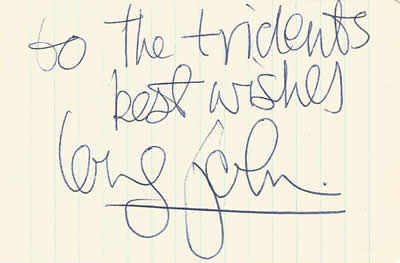 to the tridents
best wishes
Long John.